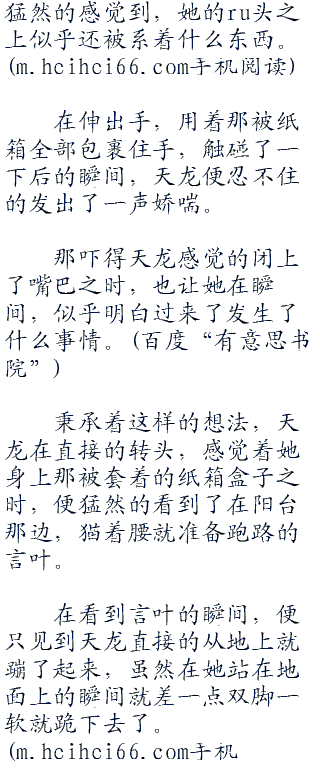 猛然的感觉到，她的ru头之
上似乎还被系着什么东西。
(m.hcihci66.com手机阅读)
在伸出手，用着那被纸
箱全部包裹住手，触碰了一
下后的瞬间，天龙便忍不住
的发出了一声娇喘。
那吓得天龙感觉的闭上
了嘴巴之时，也让她在瞬
间，似乎明白过来了发生了
什么事情。(百度“有意思书
院”)
秉承着这样的想法，天
龙在直接的转头，感觉着她
身上那被套着的纸箱盒子之
时，便猛然的看到了在阳台
那边，猫着腰就准备跑路的
言叶。
在看到言叶的瞬间，便
只见到天龙直接的从地上就
蹦了起来，虽然在她站在地
面上的瞬间就差一点双脚一
软就跪下去了。
(m.hcihci66.com手机